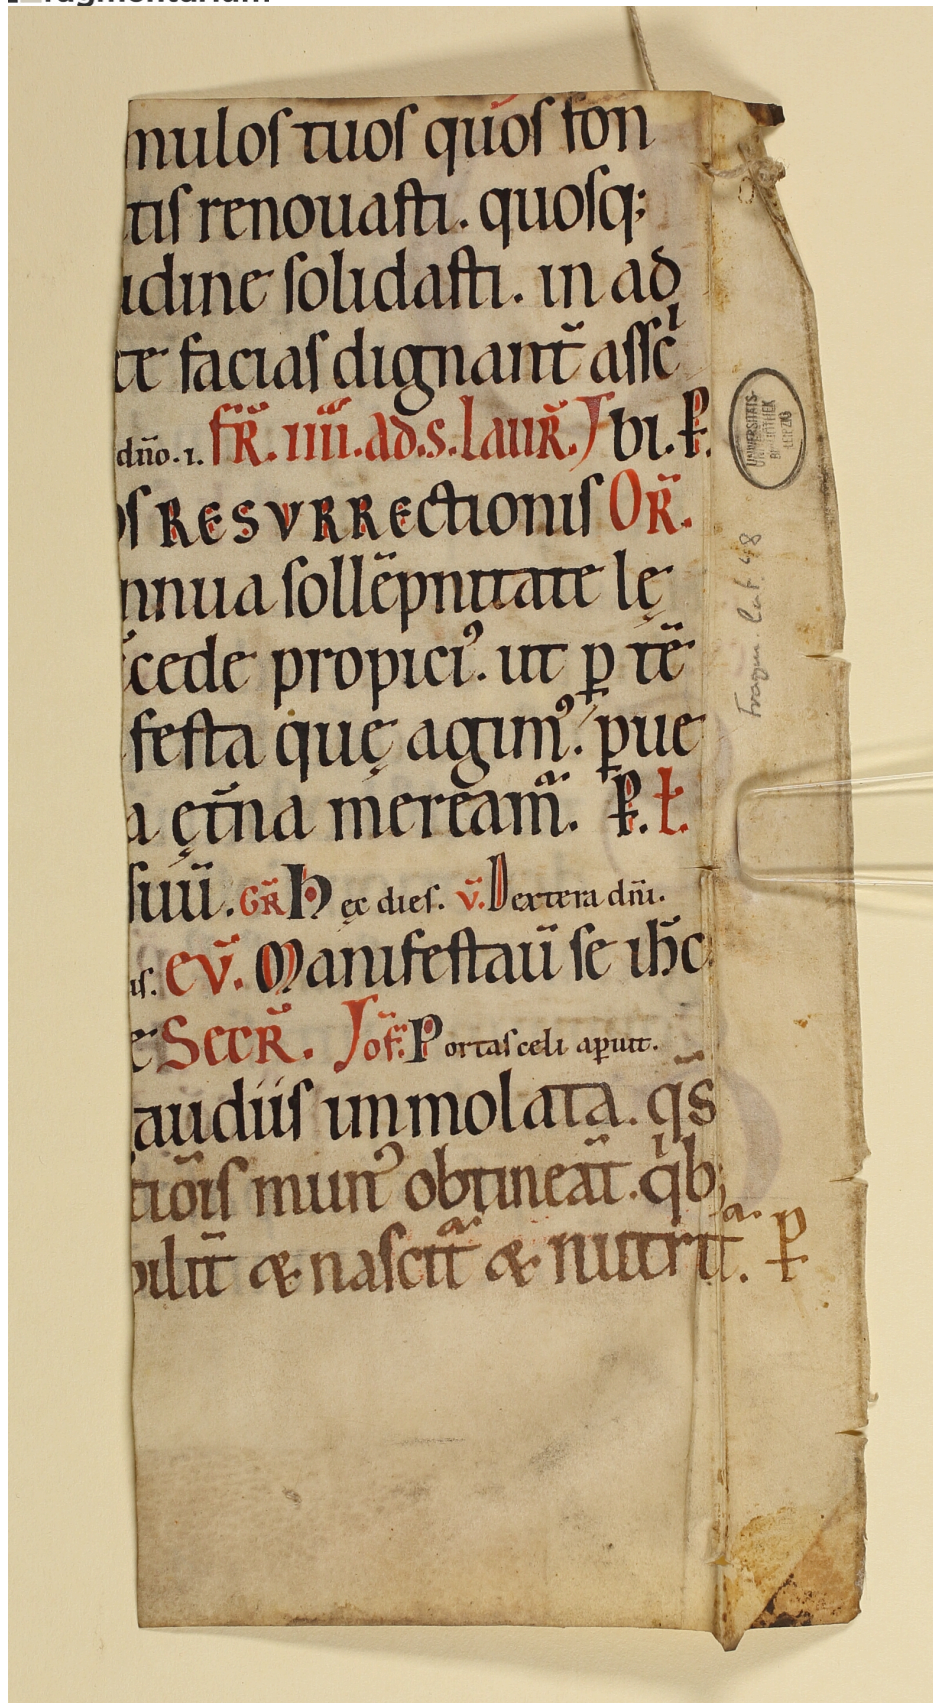 mulos tuos quos fon
tis renouasti. quosq;
udine solidasti. in ad
te facias dignant̄ assc̄
dn̄o. 1. FR̄. IIII. ad. s. laur̄. J bi. P.
os RESVRRECtionis OR̄.
nnua sollēpnitate lę
cede propici⁹. ut ꝑ tē
festa quę agim⁹. ꝑue
a ęt̄na meream̄. P. t.
suū. GR̄ Hęc dies. v̄. Dextera dn̄i.
us. EV̄. Manifestau̅ se ih̄c
e SECR̄. Jof̄. Portas celi aꝑuit.
audiis immolata. q̄s
tiōis mun⁹ obtineāt. qⁱb;
bilit̄ & nascitᵃ & nutritᵃ. P
UNIVERSITÄTS-
BIBLIOTHEK
LEIPZIG
Fragm. Lat. 48